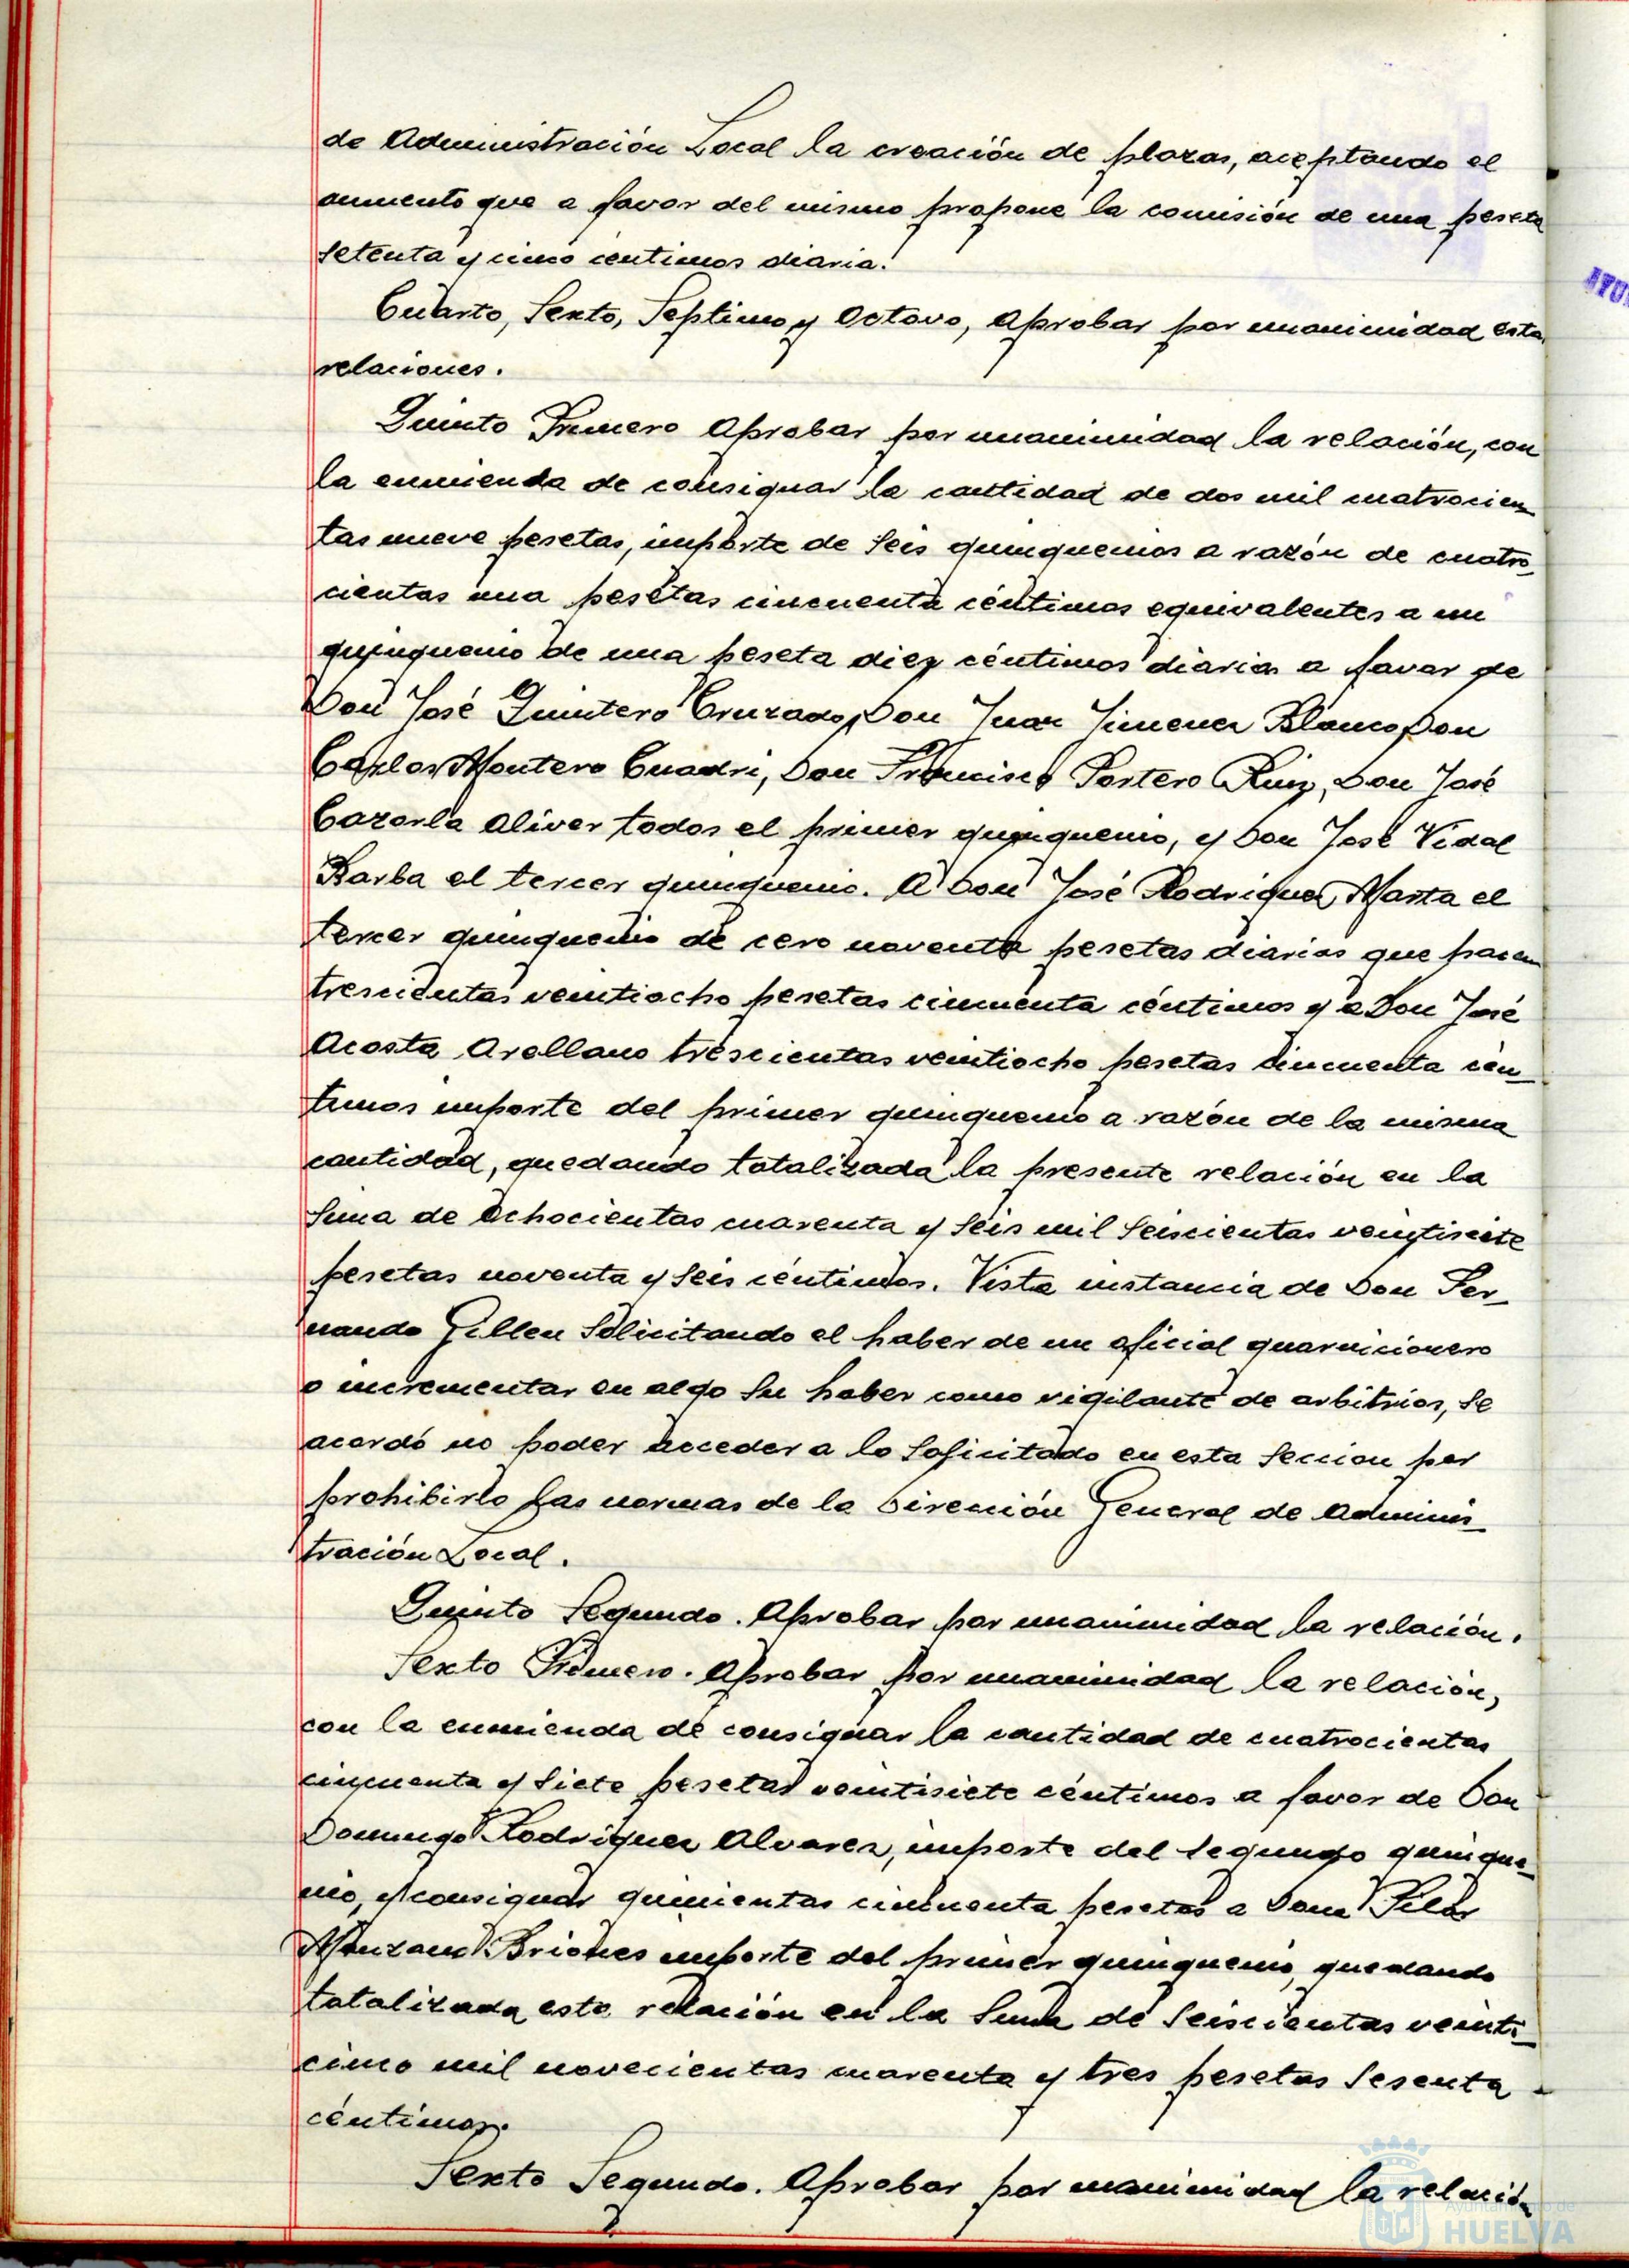 de Administración Local la creación de plazas, aceptando el
aumento que a favor del mismo propone la comisión de una peseta
setenta y cinco centimos diaria.
Cuarto, Sexto, Septimo y Octavo, Aprobar por unanimidad esta
relaciones.
Quinto Primero Aprobar por unanimidad la relación, con
la enmienda de consignar la cantidad de dos mil cuatrocien
tas nueve pesetas, importe de seis quinquenios a razón de cuatro_
cientas una pesetas cincuenta céntimos equivalentes a un
quinquenio de una peseta diez céntimos diarios a favor de
Don José Quintero Cruzado, Don Juan Jimenez Blanco, Don
Carlos Montero Cuadri, Don Francisco Portero Ruiz, Don José
Cazorla Oliver todos el primer quinquenio, y Don José Vidal
Barba el tercer quinquenio. A Don José Rodriguez Marta el
tercer quinquenio de cero noventa pesetas diarias que hacen
trescientas veintiocho pesetas cincuenta céntimos y a Don José
Acosta Arellano trescientas veintiocho pesetas cincuenta cén_
timos importe del primer quinquenio a razón de la misma
cantidad, quedando totalizada la presente relación en la
suma de Ochocientas cuarenta y seis mil seiscientas veintisiete
pesetas noventa y seis céntimos. Vista instancia de Don Fer_
nando Gillen solicitando el haber de un oficial guarnicionero
o incrementar en algo su haber como vigilante de arbitrios, se
acordó no poder acceder a lo solicitado en esta seccion por
prohibirlo las normas de la Dirección General de Adminis_
tración Local.
Quinto Segundo. Aprobar por unanimidad la relación.
Sexto Primero. Aprobar por unanimidad la relación,
con la enmienda de consignar la cantidad de cuatrocientas
cincuenta y siete pesetas veintisiete céntimos a favor de Don
Domingo Rodriguez Alvarez, importe del segundo quinque_
nio, y consignar quinientas cincuenta pesetas a Dona Pilar
Manzano Briones importe del primer quinquenio, quedando
totalizada esta relación en la suma de seiscientas veinti_
cinco mil novecientas cuarenta y tres pesetas sesenta
céntimos.
Sexto Segundo. Aprobar por unanimidad la relación
Ayuntamiento de
HUELVA